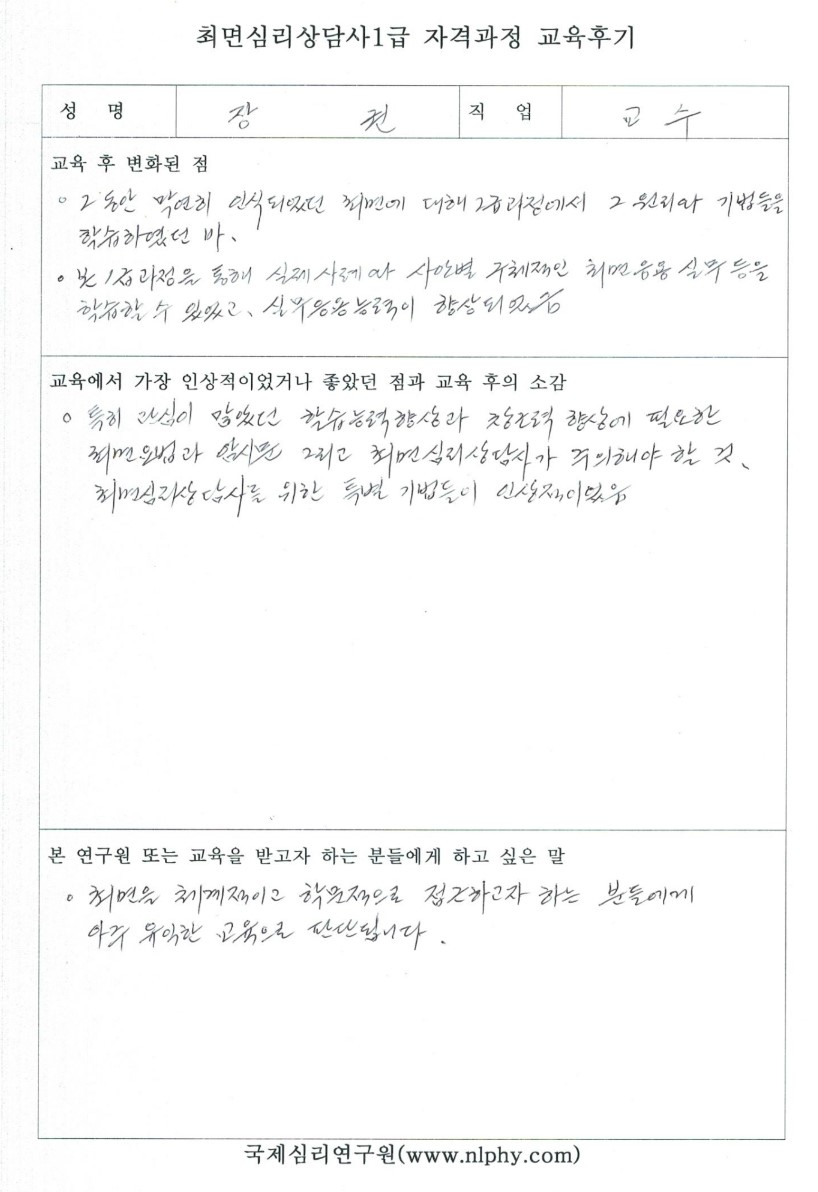 최면심리상담사1급 자격과정 교육후기
성 명 장 권 직 업 교 수
교육 후 변화된 점
o 그동안 막연히 인식되었던 최면에 대해 2급과정에서 그 원리와 기법들을
학습하였던 바,
o 본 1급과정을 통해 실제사례와 사안별 구체적인 최면응용 실무 등을
학습할 수 있었고, 실무응용능력이 향상되었음
교육에서 가장 인상적이었거나 좋았던 점과 교육 후의 소감
o 특히 관심이 많았던 학습능력향상과 창조력 향상에 필요한
최면요법과 암시문 그리고 최면심리상담사가 주의해야 할 것,
최면심리상담사를 위한 특별 기법들이 인상적이었음
본 연구원 또는 교육을 받고자 하는 분들에게 하고 싶은 말
o 최면을 체계적이고 학문적으로 접근하고자 하는 분들에게
아주 유익한 교육으로 판단됩니다.
국제심리연구원(www.nlphy.com)